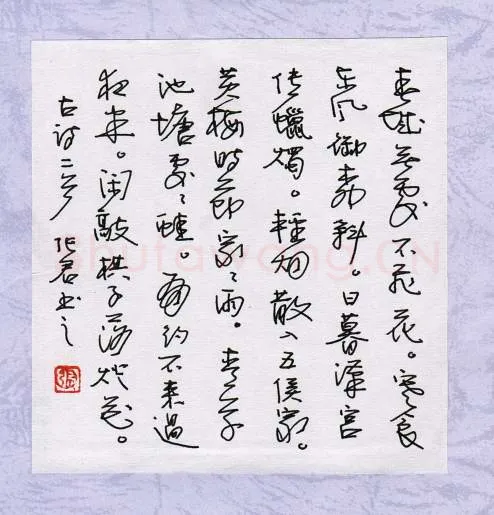 春城無處不飛花。寒食
東風御柳斜。日暮漢宮
传蠟燭。輕烟散入五侯家。
黄梅時節家々雨。青草
池塘處々蛙。有约不来過
夜半。闲敲棋子落灯花。
古诗二首 君书之
Shufawang.CN